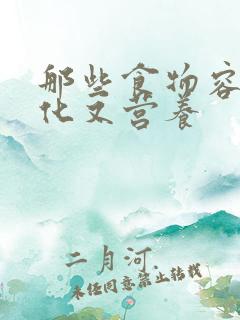 那些食物容
化又营养
二月河
未经同意禁止转载